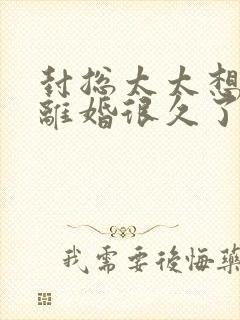 封总太太想
離婚很久了
我需要後悔藥